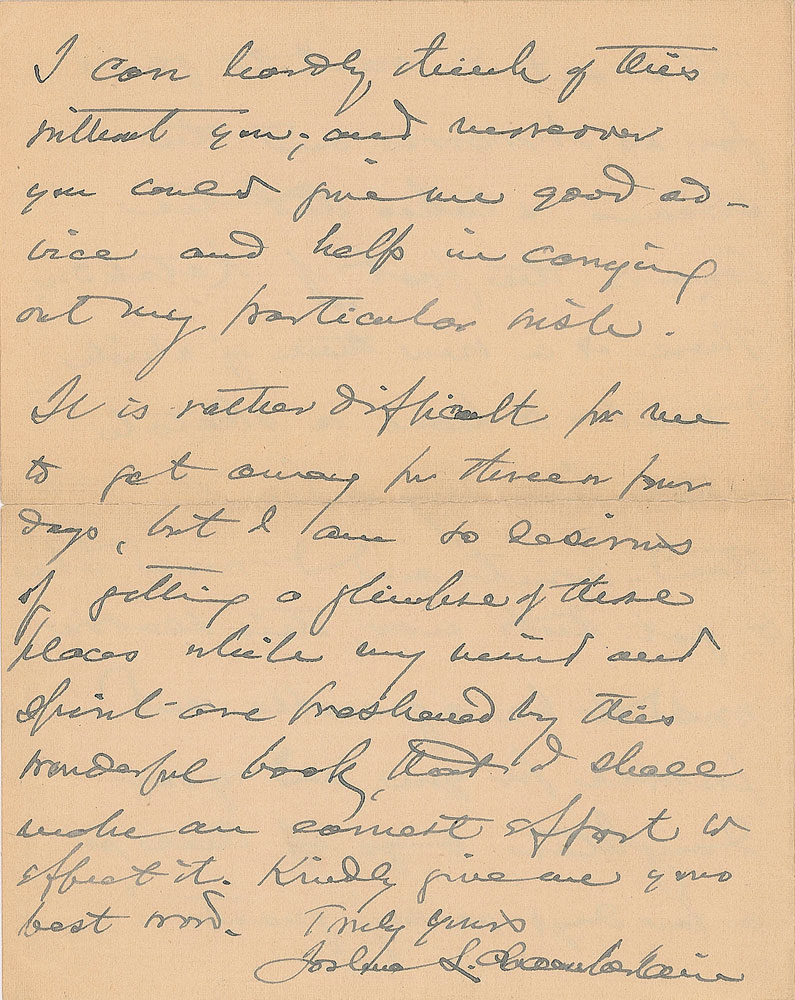 I can hardly think of this
without you; and moreover
you could give me good ad-
vice and help in carrying
out my particular wish.
It is rather difficult for me
to get away for three or four
days, but I am so desirous
of getting a glimpse of these
places while my mind and
spirit are freshened by this
wonderful book, that I shall
make an earnest effort to
effect it. Kindly give me your
best word. Truly yours
Joshua L. Chamberlain